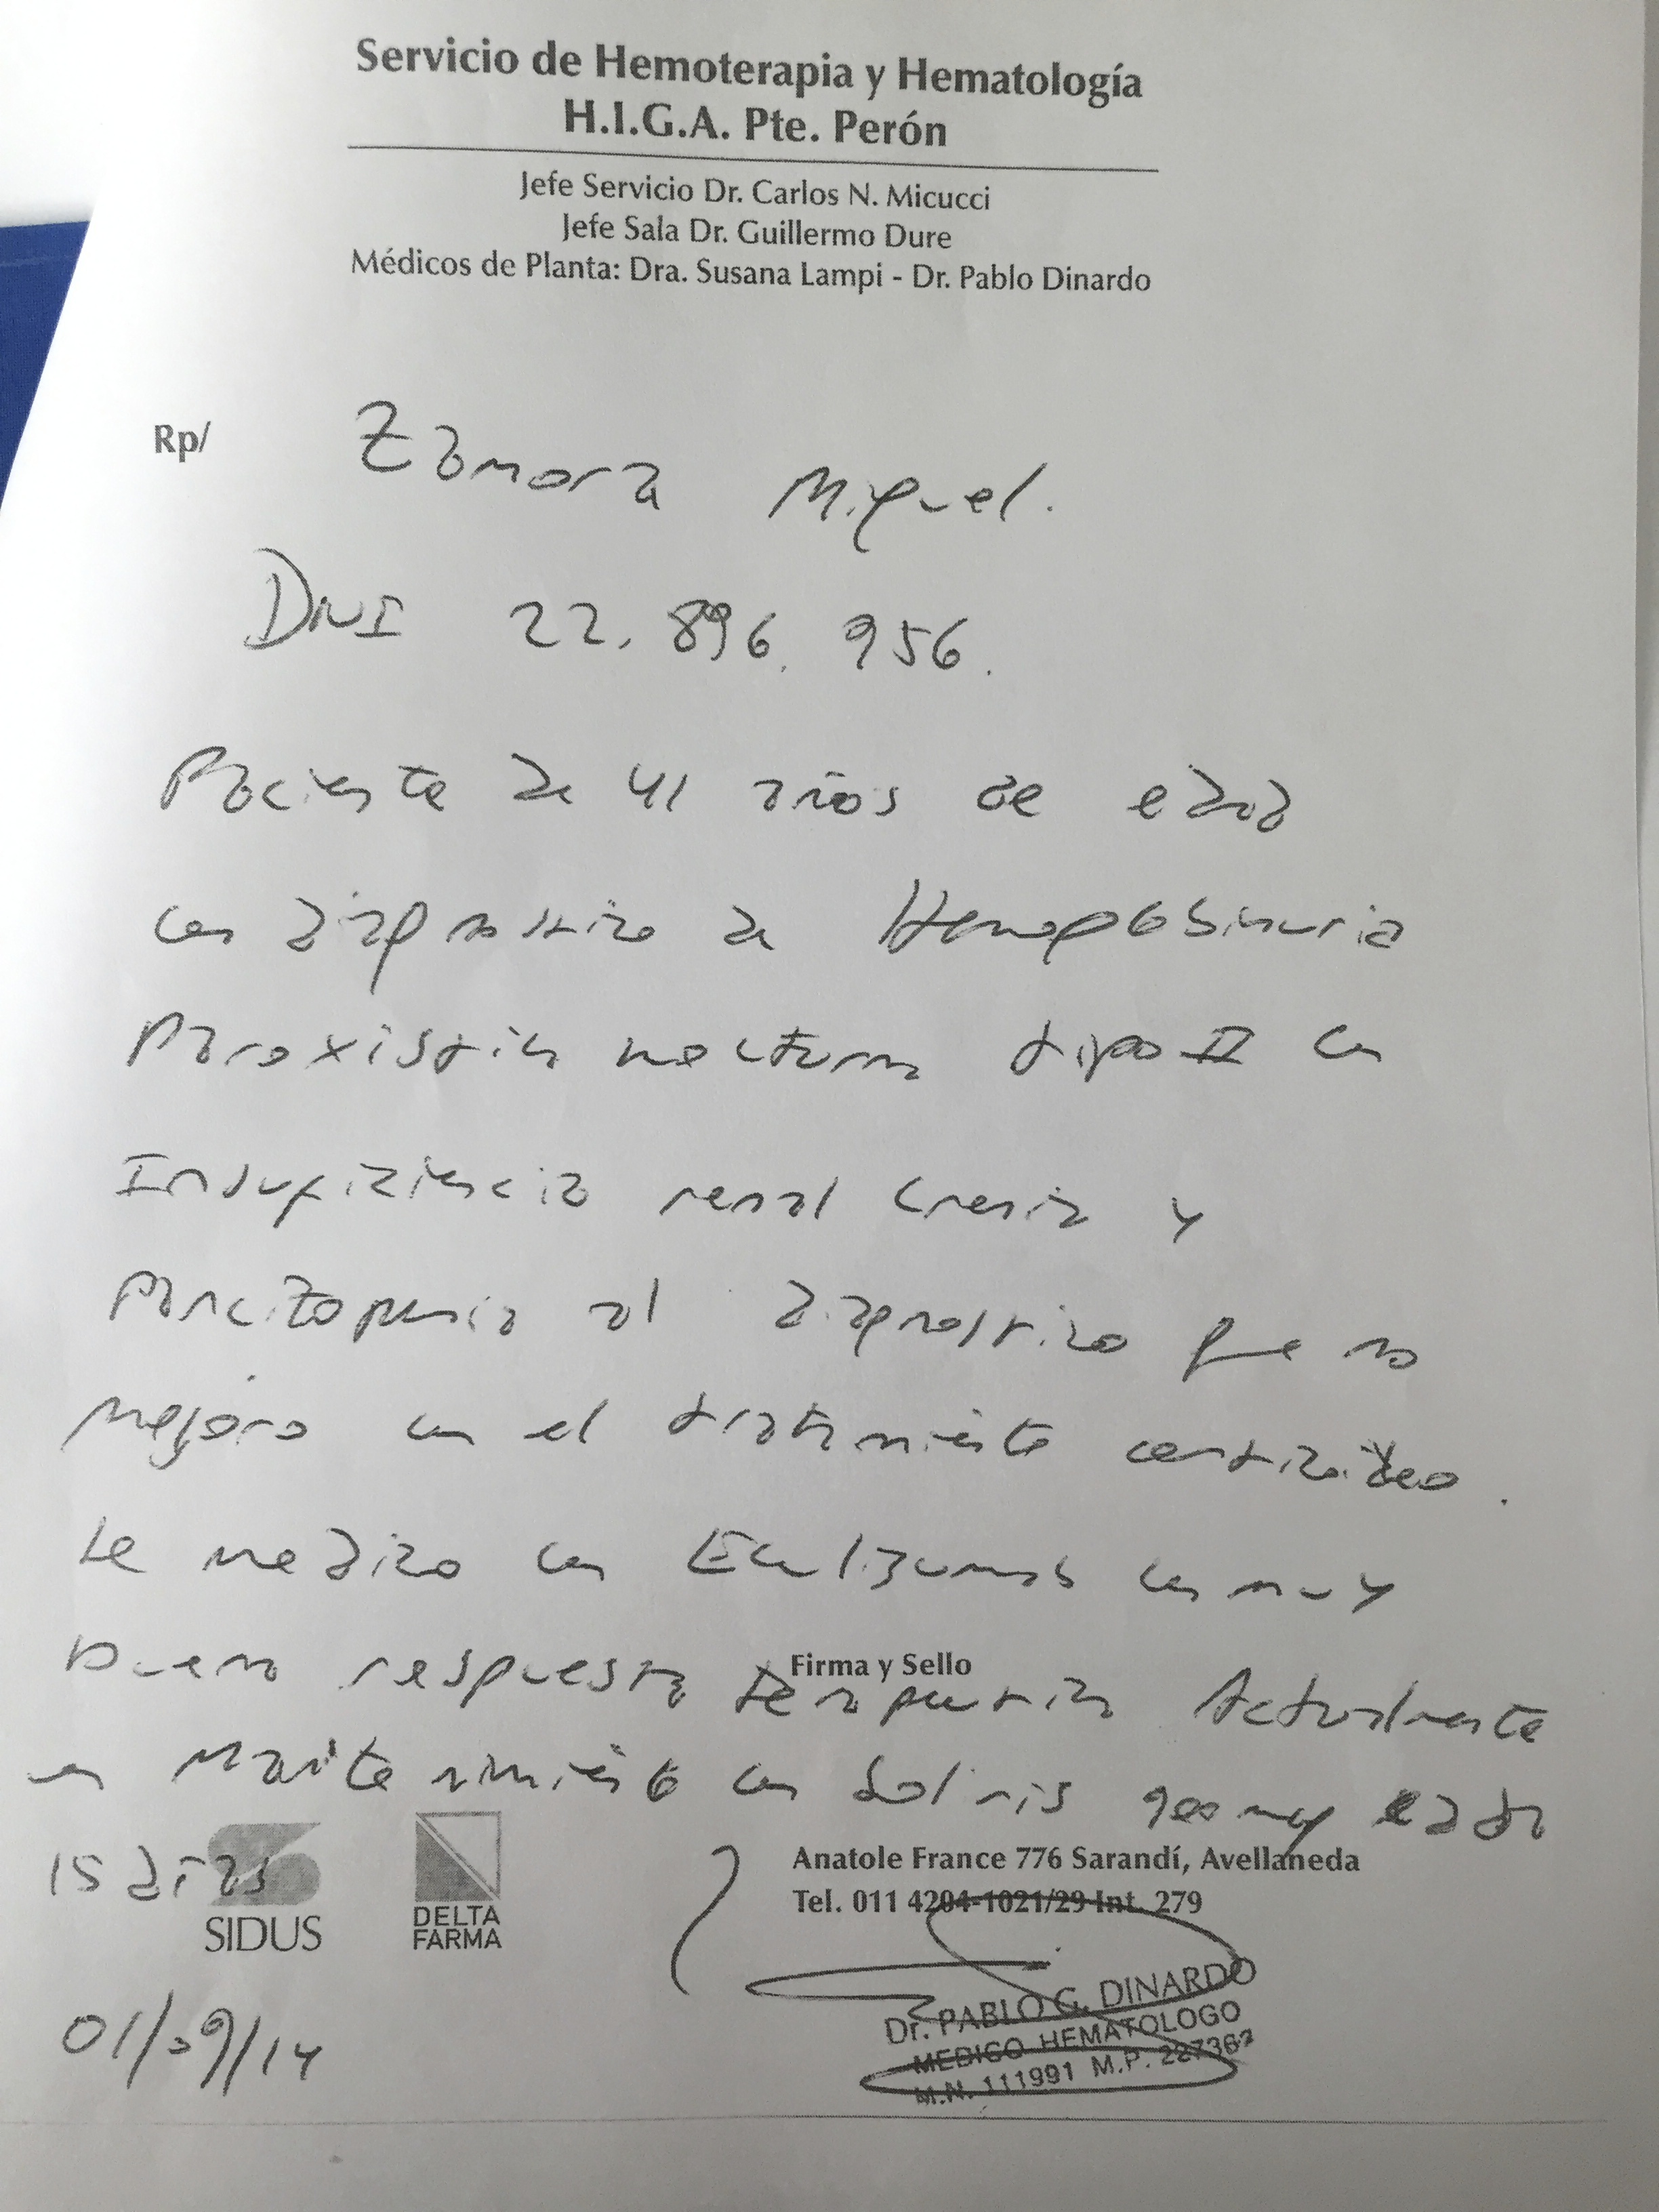 Servicio de Hemoterapia y Hematología
H.I.G.A. Pte. Perón
Jefe Servicio Dr. Carlos N. Micucci
Jefe Sala Dr. Guillermo Dure
Médicos de Planta: Dra. Susana Lampi - Dr. Pablo Dinardo
Rp/ Zamora Miguel.
DNI 22.896.956.
Paciente de 41 años de edad
con diagnostico de Hemoglobinuria
Paroxistica nocturna tipo II con
Insuficiencia renal cronica y
Pancitopenia al diagnostico que no
mejoro con el tratamiento corticoideo.
Se medico con Eculizumab con muy
buena respuesta terapeutica Actualmente
Firma y Sello
en Mantenimiento con Soliris 900 mg cada
15 dias
SIDUS
DELTA
FARMA
Anatole France 776 Sarandí, Avellaneda
Tel. 011 4204-1021/29 Int. 279
Dr. PABLO G. DINARDO
MEDICO HEMATOLOGO
M.N. 111991 M.P.
01/09/14